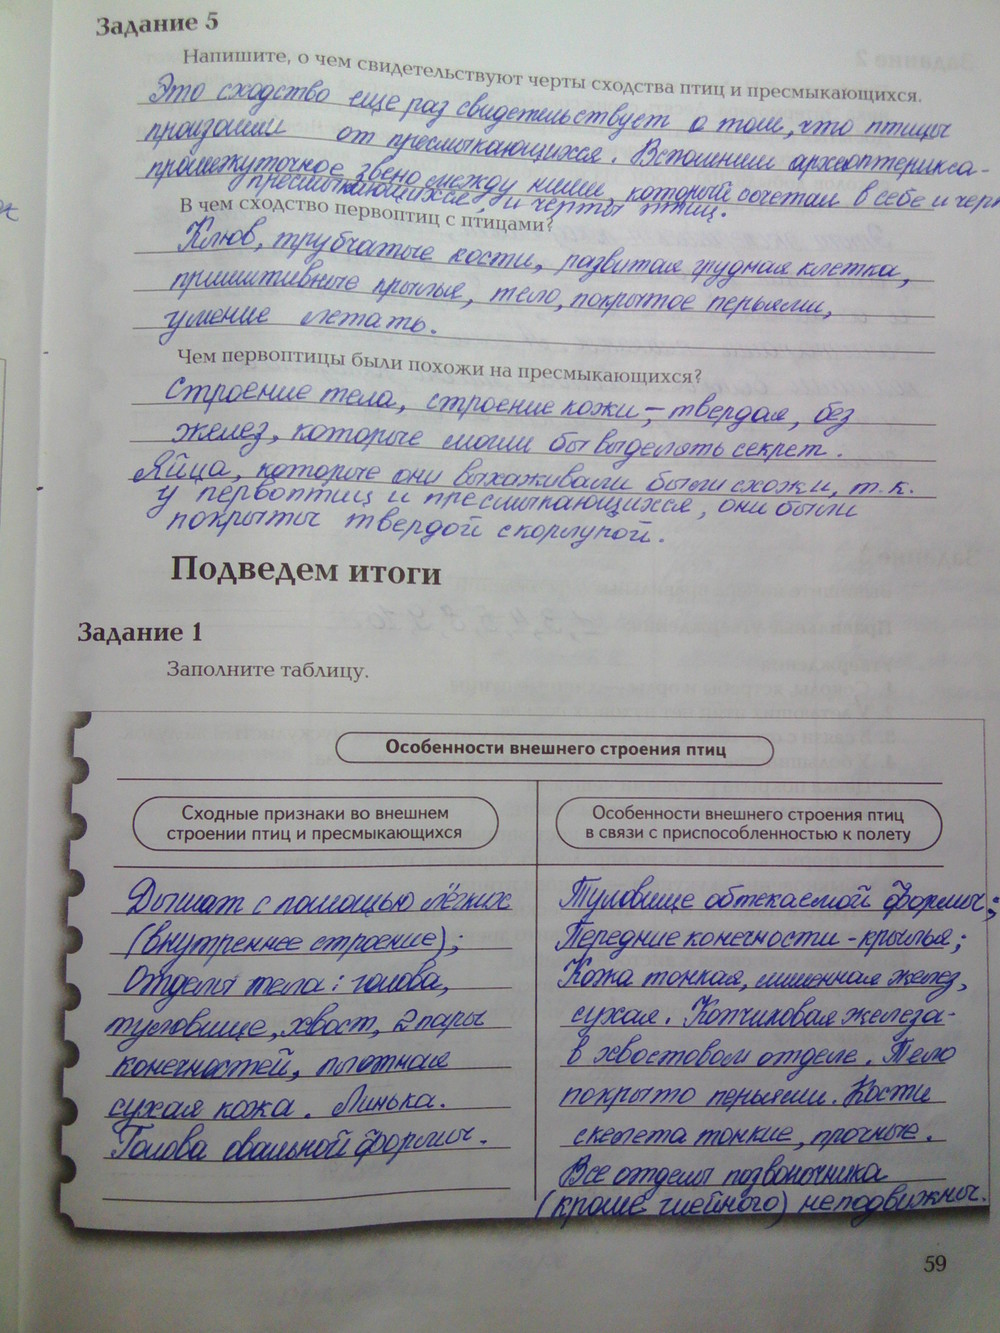 Задание 5
Напишите, о чем свидетельствуют черты сходства птиц и пресмыкающихся.
Это сходство еще раз свидетельствует о том, что птицы
произошли от пресмыкающихся. Вспомним археоптерикса-
промежуточное звено между ними, который сочетал в себе и черт
пресмыкающихся, и черты птиц.
В чем сходство первоптиц с птицами?
Клюв, трубчатые кости, развитая грудная клетка,
примитивные крылья, тело, покрытое перьями,
умение летать.
Чем первоптицы были похожи на пресмыкающихся?
Строение тела, строение кожи - твердая, без
желез, которые могли бы выделять секрет.
Яйца, которые они выхаживали были схожи, т.к.
у первоптиц и пресмыкающихся, они были
покрыты твердой скорлупой.
Подведем итоги
Задание 1
Заполните таблицу.
Особенности внешнего строения птиц
Сходные признаки во внешнем
строении птиц и пресмыкающихся
Дышат с помощью лёгких
(внутреннее строение);
Отделы тела: голова,
туловище, хвост, 2 пары
конечностей, плотная
сухая кожа. Линька.
Голова овальной формы.
Особенности внешнего строения птиц
в связи с приспособленностью к полету
Туловище обтекаемой формы;
Передние конечности - крылья;
Кожа тонкая, лишенная желез,
сухая. Копчиковая железа-
в хвостовом отделе. Тело
покрыто перьями. Кости
скелета тонкие, прочные.
Все отделы позвоночника
(кроме шейного) неподвижны.
59